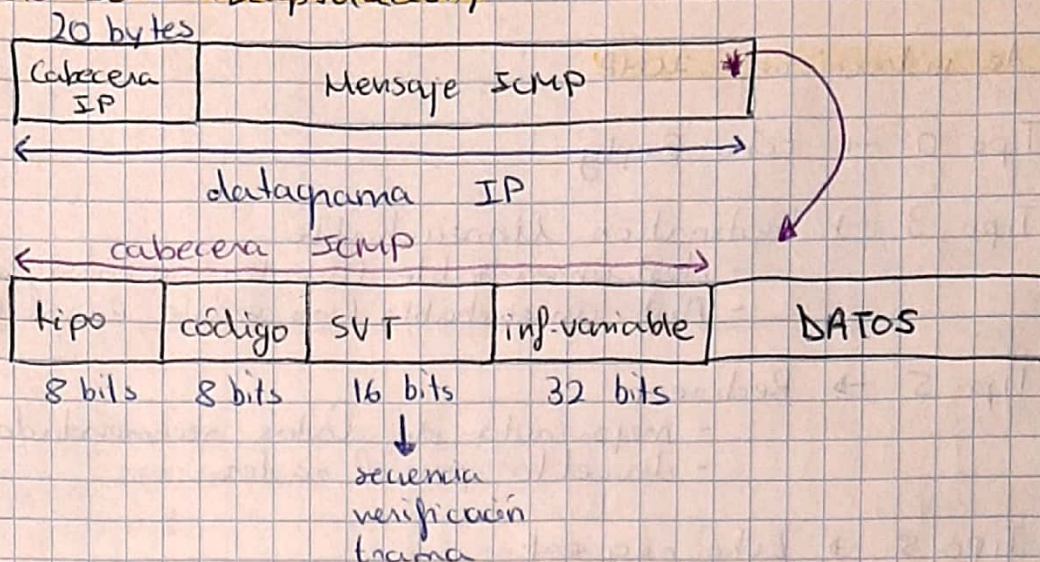 20 bytes
Cabecera IP
Mensaje ICMP *
datagrama IP
cabecera ICMP
tipo código SVT inf. variable DATOS
8 bits 8 bits 16 bits 32 bits
secuencia
verificación
trama